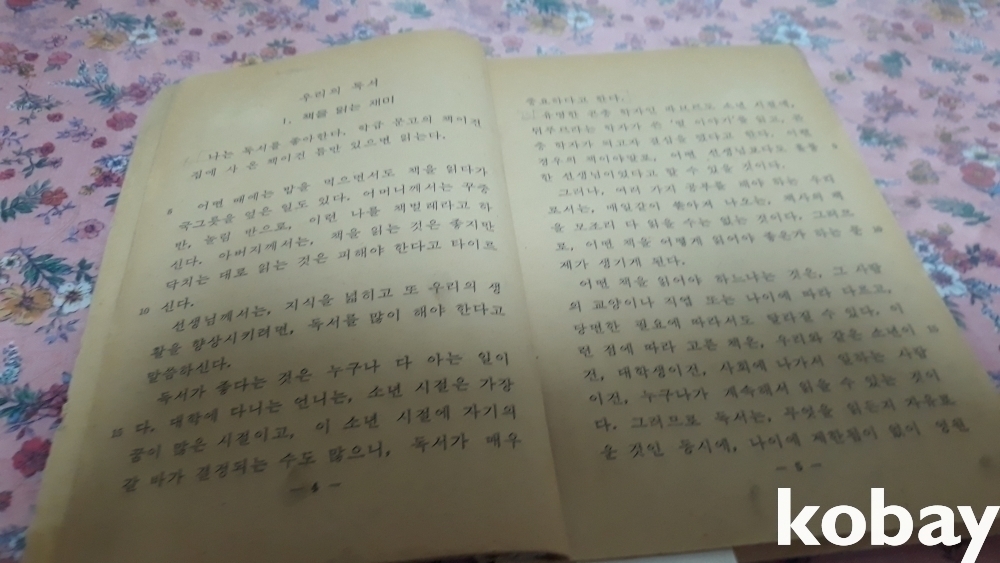 우리의 독서
1. 책을 읽는 재미
나는 독서를 좋아한다. 학급 문고의 책이건
집에 사 온 책이건 틈만 있으면 읽는다.
어떤 때에는 밥을 먹으면서도 책을 읽다가
5 국그릇을 엎은 일도 있다. 어머니께서는 꾸중
반, 놀림 반으로, 이런 나를 책벌레라고 하
신다. 아버지께서는, 책을 읽는 것은 좋지만
닥치는 대로 읽는 것은 피해야 한다고 타이르
10 신다.
선생님께서는, 지식을 넓히고 또 우리의 생
활을 향상시키려면, 독서를 많이 해야 한다고
말씀하신다.
독서가 좋다는 것은 누구나 다 아는 일이
15 다. 대학에 다니는 언니는, 소년 시절은 가장
꿈이 많은 시절이고, 이 소년 시절에 자기의
갈 바가 결정되는 수도 많으니, 독서가 매우
— 4 —
중요하다고 한다.
유명한 곤충 학자인 파브르도 소년 시절에,
뒤푸르라는 학자가 쓴 '벌 이야기'를 읽고, 곤
충 학자가 되고자 결심을 했다고 한다. 이런
경우의 책이야말로, 어떤 선생님보다도 훌륭 5
한 선생님이었다고 할 수 있을 것이다.
그러나, 여러 가지 공부를 해야 하는 우리
로서는, 매일같이 쏟아져 나오는, 책을
을 모조리 다 읽을 수는 없는 것이다. 그러므
로, 어떤 책을 어떻게 읽어야 좋은가 하는 문 10
제가 생기게 된다.
어떤 책을 읽어야 하느냐는 것은, 그 사람
의 교양이나 직업 또는 나이에 따라 다르고,
당면한 필요에 따라서도 달라질 수 있다. 이
런 점에 따라 고른 책은, 우리와 같은 소년이 15
건, 대학생이건, 사회에 나가서 일하는 사람
이건, 누구나가 계속해서 읽을 수 있는 것이
다. 그러므로 독서는, 무엇을 읽든지 자유로
운 것인 동시에, 나이에 제한됨이 없이 영원
— 5 —
kobay